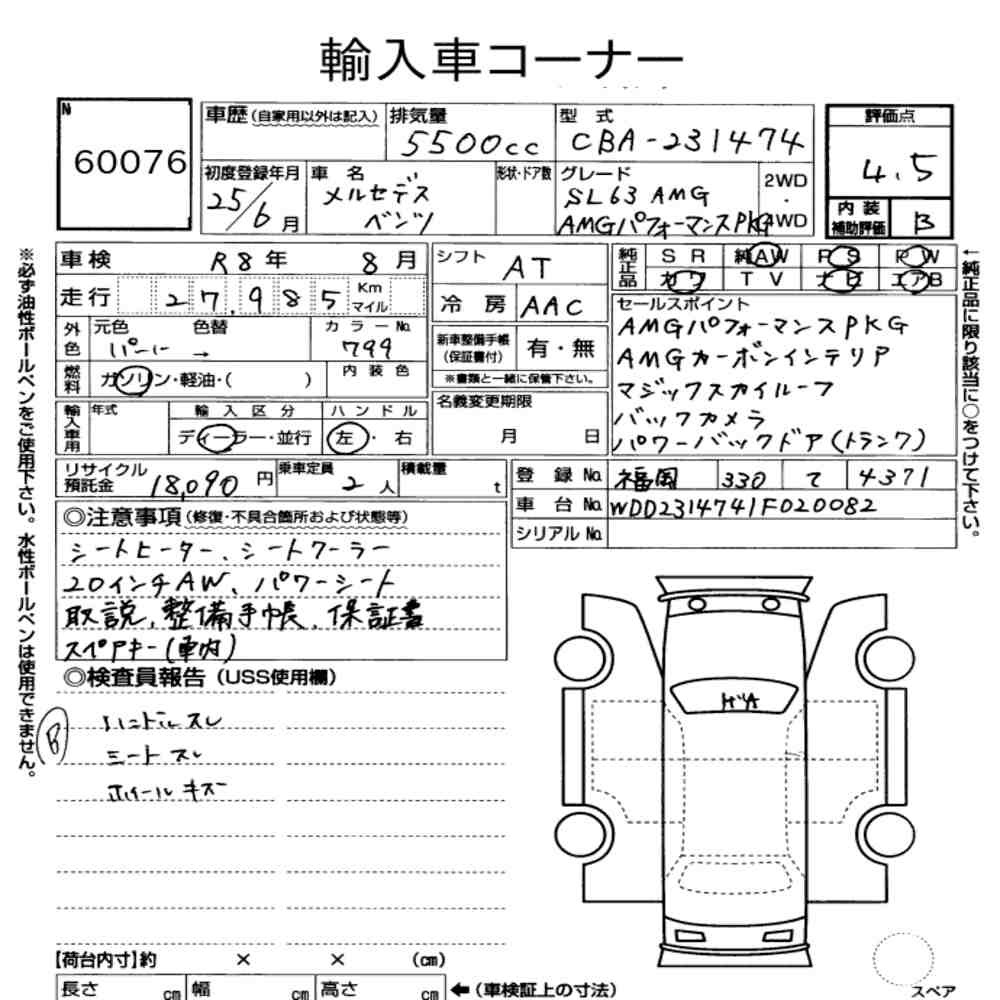 輸入車コーナー
N
60076
車歴 (自家用以外は記入)
排気量
5500cc
型式
CBA-231474
評価点
4.5
初度登録年月
25/6月
車名
メルセデス
ベンツ
形状・ドア数
グレード
SL63 AMG
AMGパフォーマンスPKG
2WD
・
4WD
内装
補助評価
B
車検 R8年 8月
シフト AT
純正品
SR 純AW PS PW
カワ TV ナビ エアB
走行 27,985 Km マイル
冷房 AAC
セールスポイント
AMGパフォーマンスPKG
AMGカーボンインテリア
マジックスカイルーフ
バックカメラ
パワーバックドア(トランク)
外色
元色 色替
パール →
カラーNo.
799
新車整備手帳
(保証書付)
有・無
※書類と一緒に保管下さい。
燃料
ガソリン・軽油・( )
内装色
名義変更期限
月 日
輸入車用
年式
輸入区分
ディーラー・並行
ハンドル
左・右
リサイクル
預託金
18,090円
乗車定員
2人
積載量
t
登録No. 福岡 330 て 4371
車台No. WDD2314741F020082
シリアルNo.
◎注意事項(修復・不具合箇所および状態等)
シートヒーター、シートクーラー
20インチAW、パワーシート
取説、整備手帳、保証書
スペアキー(車内)
◎検査員報告 (USS使用欄)
B
ハンドルスレ
シートスレ
ホイールキズ
※必ず油性ボールペンをご使用下さい。水性ボールペンは使用できません。
←純正品に限り該当に○をつけて下さい。
【荷台内寸】約 × × (cm)
長さ cm 幅 cm 高さ cm ←(車検証上の寸法)
スペア